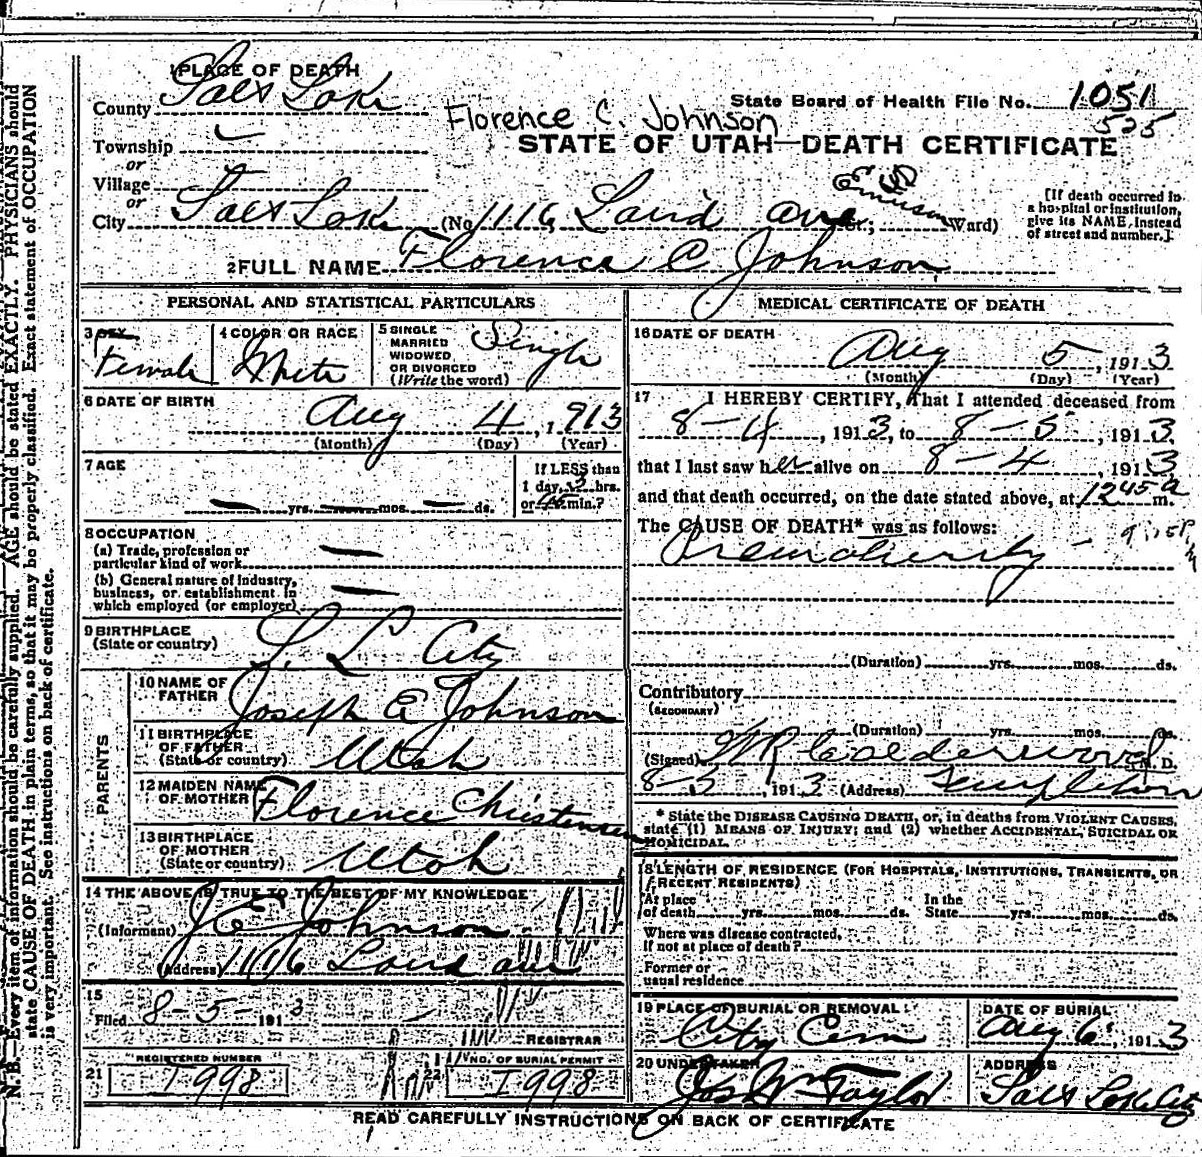 N. B.—Every item of information should be carefully supplied. AGE should be stated EXACTLY. PHYSICIANS should
state CAUSE OF DEATH in plain terms, so that it may be properly classified. Exact statement of OCCUPATION
is very important. See instructions on back of certificate.
1 PLACE OF DEATH
County Salt Lake
State Board of Health File No. 1051
525
Florence C. Johnson
Township
STATE OF UTAH—DEATH CERTIFICATE
or
Village
or
City Salt Lake (No. 1116 Laird ave St.; Emerson Ward)
[If death occurred in
a hospital or institution,
give its NAME, instead
of street and number.]
2 FULL NAME Florence C Johnson
PERSONAL AND STATISTICAL PARTICULARS
3 SEX
Female
4 COLOR OR RACE
White
5 SINGLE
MARRIED
WIDOWED
OR DIVORCED
(Write the word)
Single
6 DATE OF BIRTH
Aug 4, 1913
(Month) (Day) (Year)
7 AGE
— yrs. — mos. — ds.
If LESS than
1 day, 3 hrs.
or 45 min.?
8 OCCUPATION
(a) Trade, profession or
particular kind of work —
(b) General nature of industry,
business, or establishment in
which employed (or employer) —
9 BIRTHPLACE
(State or country) S. L. City
PARENTS
10 NAME OF
FATHER Joseph E Johnson
11 BIRTHPLACE
OF FATHER
(State or country) Utah
12 MAIDEN NAME
OF MOTHER Florence Christensen
13 BIRTHPLACE
OF MOTHER
(State or country) Utah
14 THE ABOVE IS TRUE TO THE BEST OF MY KNOWLEDGE
(Informant) J E Johnson
(Address) 1116 Laird ave
15
Filed 8-5- 1913
REGISTRAR
REGISTERED NUMBER
21 1998
NO. OF BURIAL PERMIT
22 1998
MEDICAL CERTIFICATE OF DEATH
16 DATE OF DEATH
Aug 5, 1913
(Month) (Day) (Year)
17 I HEREBY CERTIFY, That I attended deceased from
8-4, 1913, to 8-5, 1913
that I last saw her alive on 8-4, 1913
and that death occurred, on the date stated above, at 1245 a m.
The CAUSE OF DEATH* was as follows:
(Duration) yrs. mos. ds.
Contributory
(SECONDARY)
(Duration) yrs. mos. ds.
(Signed) W R Calderwood M. D.
8-5, 1913 (Address) Templeton
* State the DISEASE CAUSING DEATH, or, in deaths from VIOLENT CAUSES,
state (1) MEANS OF INJURY; and (2) whether ACCIDENTAL, SUICIDAL OR
HOMICIDAL.
18 LENGTH OF RESIDENCE (FOR HOSPITALS, INSTITUTIONS, TRANSIENTS, OR
RECENT RESIDENTS)
At place
of death yrs. mos. ds.
In the
State yrs. mos. ds.
Where was disease contracted,
If not at place of death?
Former or
usual residence
19 PLACE OF BURIAL OR REMOVAL
City Cem
DATE OF BURIAL
Aug 6, 1913
20 UNDERTAKER
Jos Wm Taylor
ADDRESS
Salt Lake City
READ CAREFULLY INSTRUCTIONS ON BACK OF CERTIFICATE